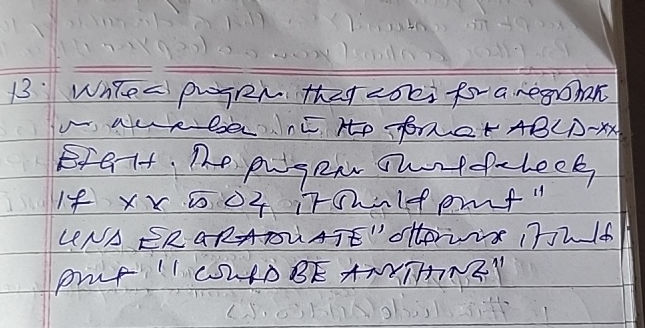 13. Write a program that asks for a registrat
number in the format ABCD-XX
EFGH. The program should check,
If xx is 04, it should print "
UNDERGRADUATE" otherwise it should
print "COULD BE ANYTHING"